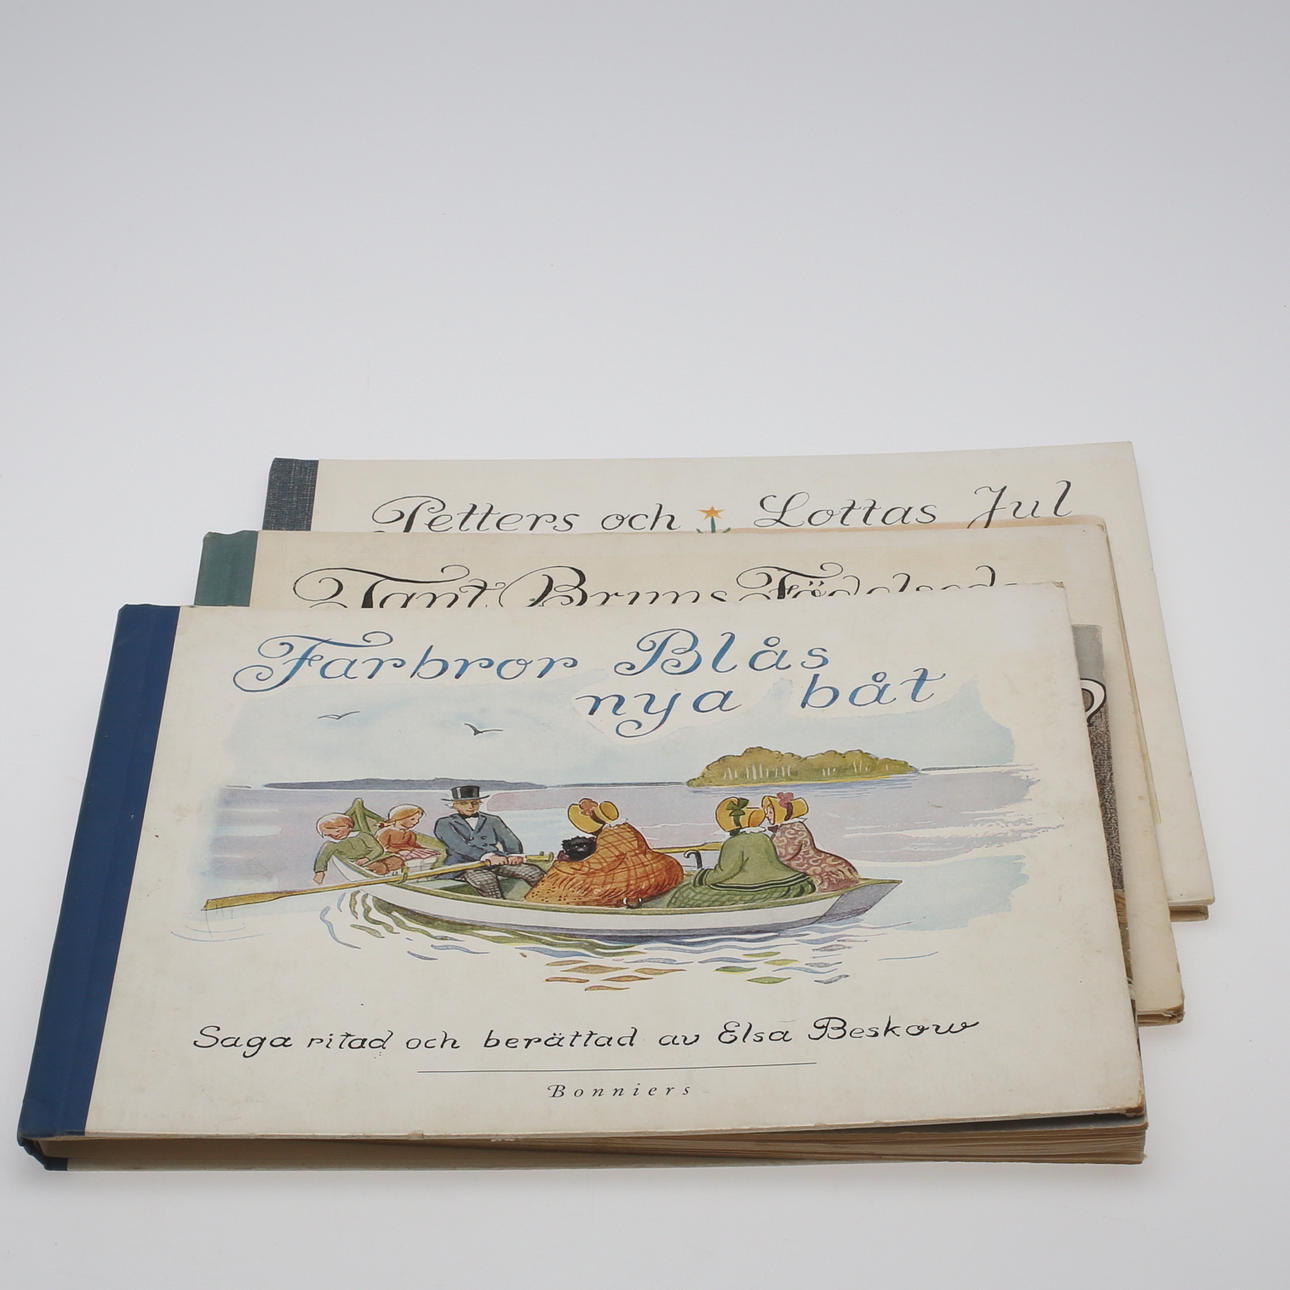 Petters och Lottas Jul
Tant Bruns
Farbror Blås
nya båt
Saga ritad och berättad av Elsa Beskow
Bonniers